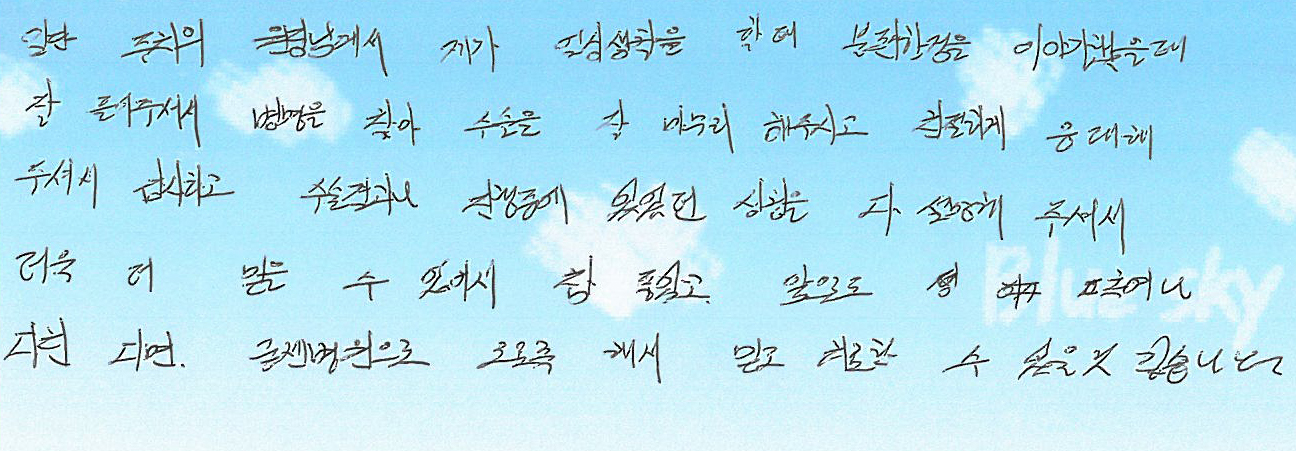 일단 주치의 원장님께서 제가 일상생활을 할 때 불편한점을 이야기했을때
잘 들어주셔서 병명을 찾아 수술을 잘 마무리 해주시고 친절하게 응대해
주셔서 감사하고 수술결과나 진행중에 있었던 상황을 다 설명해 주셔서
더욱 더 믿을 수 있어서 참 좋았고. 앞으로
다면. 병원으로 오도록 해서 믿고 치료할 수 있을것 같습니다
Blue sky